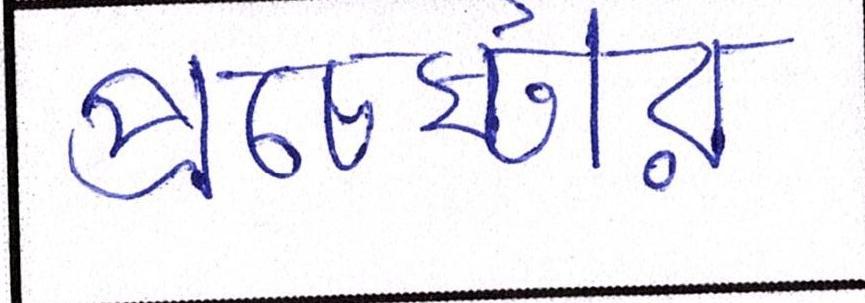 প্রচেষ্টার